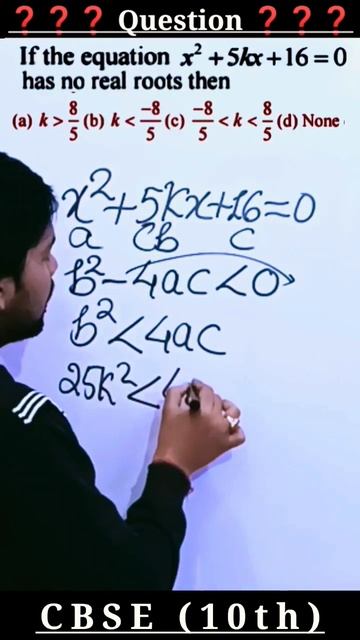 ❓❓❓ Question ❓❓❓
If the equation x² + 5kx + 16 = 0
has no real roots then
(a) k > 8/5 (b) k < -8/5 (c) -8/5 < k < 8/5 (d) None
x²+5kx+16=0
a b c
b²-4ac<0
b²<4ac
25k²<
CBSE (10th)